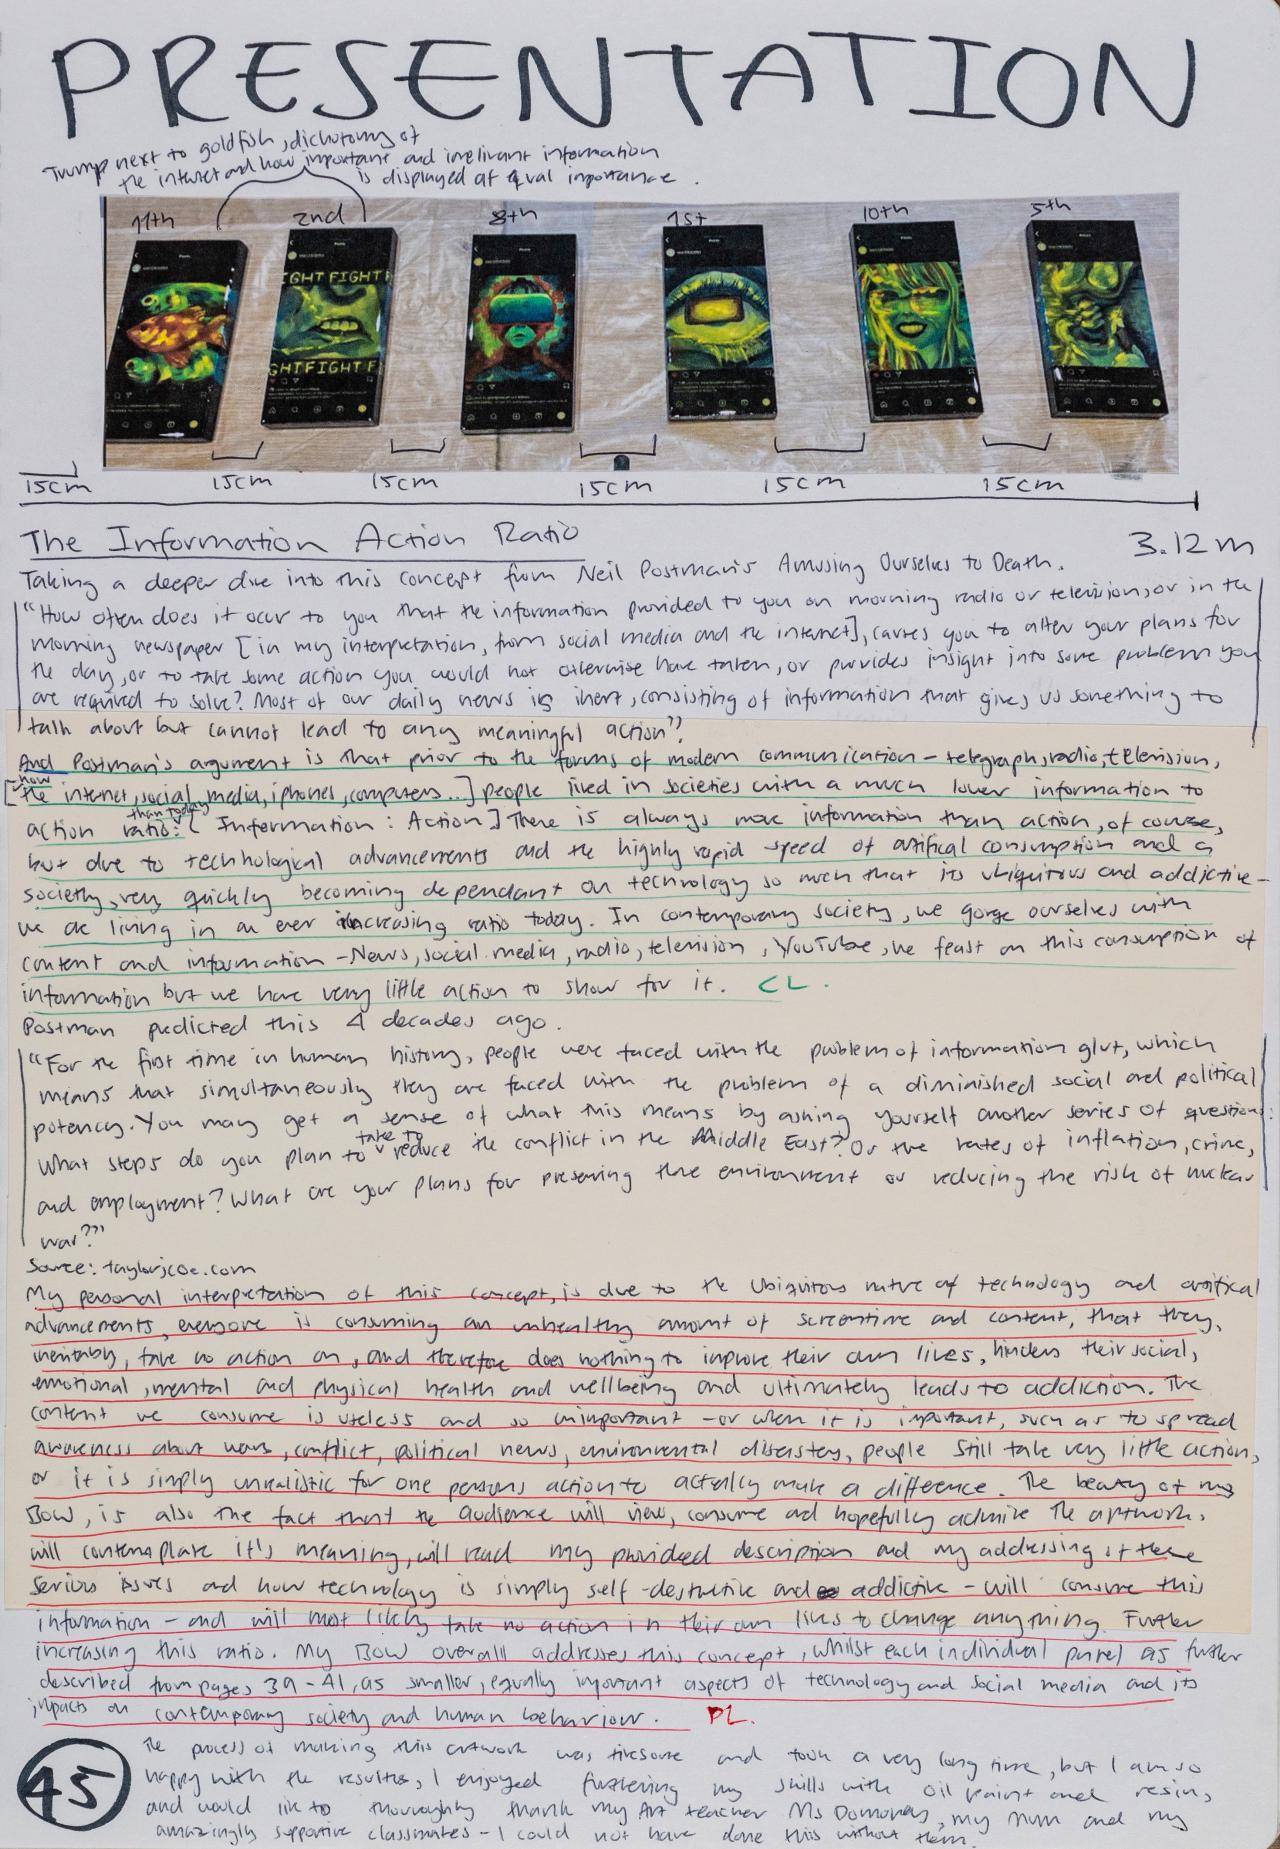 PRESENTATION
Trump next to goldfish, dichotomy of
the internet and how important and irrelivant information
is displayed at equal importance.
11th 2nd 8th 1st 10th 5th
IGHT FIGHT F
GHT FIGHT F
15cm 15cm 15cm 15cm 15cm 15cm
3.12m
The Information Action Ratio
Taking a deeper dive into this concept from Neil Postman's Amusing Ourselves to Death.
"How often does it occur to you that the information provided to you on morning radio or television, or in the
morning newspaper [in my interpretation, from social media and the internet], causes you to alter your plans for
the day, or to take some action you would not otherwise have taken, or provides insight into some problem you
are required to solve? Most of our daily news is inert, consisting of information that gives us something to
talk about but cannot lead to any meaningful action".
And Postman's argument is that prior to the forms of modern communication - telegraph, radio, television,
[now the internet, social media, iphones, computers...] people lived in societies with a much lower information to
action ratio than today: [Information : Action] There is always more information than action, of course,
but due to techological advancements and the highly rapid speed of artifical consumption and a
society, very quickly becoming dependant on technology so much that its ubiquitous and addictive -
we are living in an ever increasing ratio today. In contemporary society, we gorge ourselves with
content and information - News, social media, radio, television, YouTube, we feast on this consumption of
information but we have very little action to show for it. CL.
Postman predicted this 4 decades ago.
"For the first time in human history, people were faced with the problem of information glut, which
means that simultaneously they are faced with the problem of a diminished social and political
potency. You may get a sense of what this means by asking yourself another series of questions:
What steps do you plan to take to reduce the conflict in the Middle East? Or the rates of inflation, crime,
and employment? What are your plans for preserving the environment or reducing the risk of nuclear
war?"
Source: taylorjcoe.com
My personal interpretation of this concept, is due to the ubiquitous nature of technology and artifical
advancements, everyone is consuming an unhealthy amount of screentime and content, that they,
inevitably, take no action on, and therefore does nothing to improve their own lives, hinders their social,
emotional, mental and physical health and wellbeing and ultimately leads to addiction. The
content we consume is useless and so unimportant - or when it is important, such as to spread
awareness about wars, conflict, political news, environmental disasters, people still take very little action,
or it is simply unrealistic for one persons action to actually make a difference. The beauty of my
BOW, is also the fact that the audience will view, consume and hopefully admire the artwork,
will contemplate it's meaning, will read my provided description and my addressing of these
serious issues and how technology is simply self-destructive and addictive - will consume this
information - and will most likely take no action in their own lives to change anything. Further
increasing this ratio. My BOW overall addresses this concept, whilst each individual panel as further
described from pages 39-41, as smaller, equally important aspects of technology and social media and its
impacts on contemporary society and human behaviour. PL.
45
The process of making this artwork was tiresome and took a very long time, but I am so
happy with the results, I enjoyed furthering my skills with oil paint and resin,
and would like to thoroughly thank my Art teacher Ms my Mum and my
amazingly supportive classmates - I could not have done this without them.